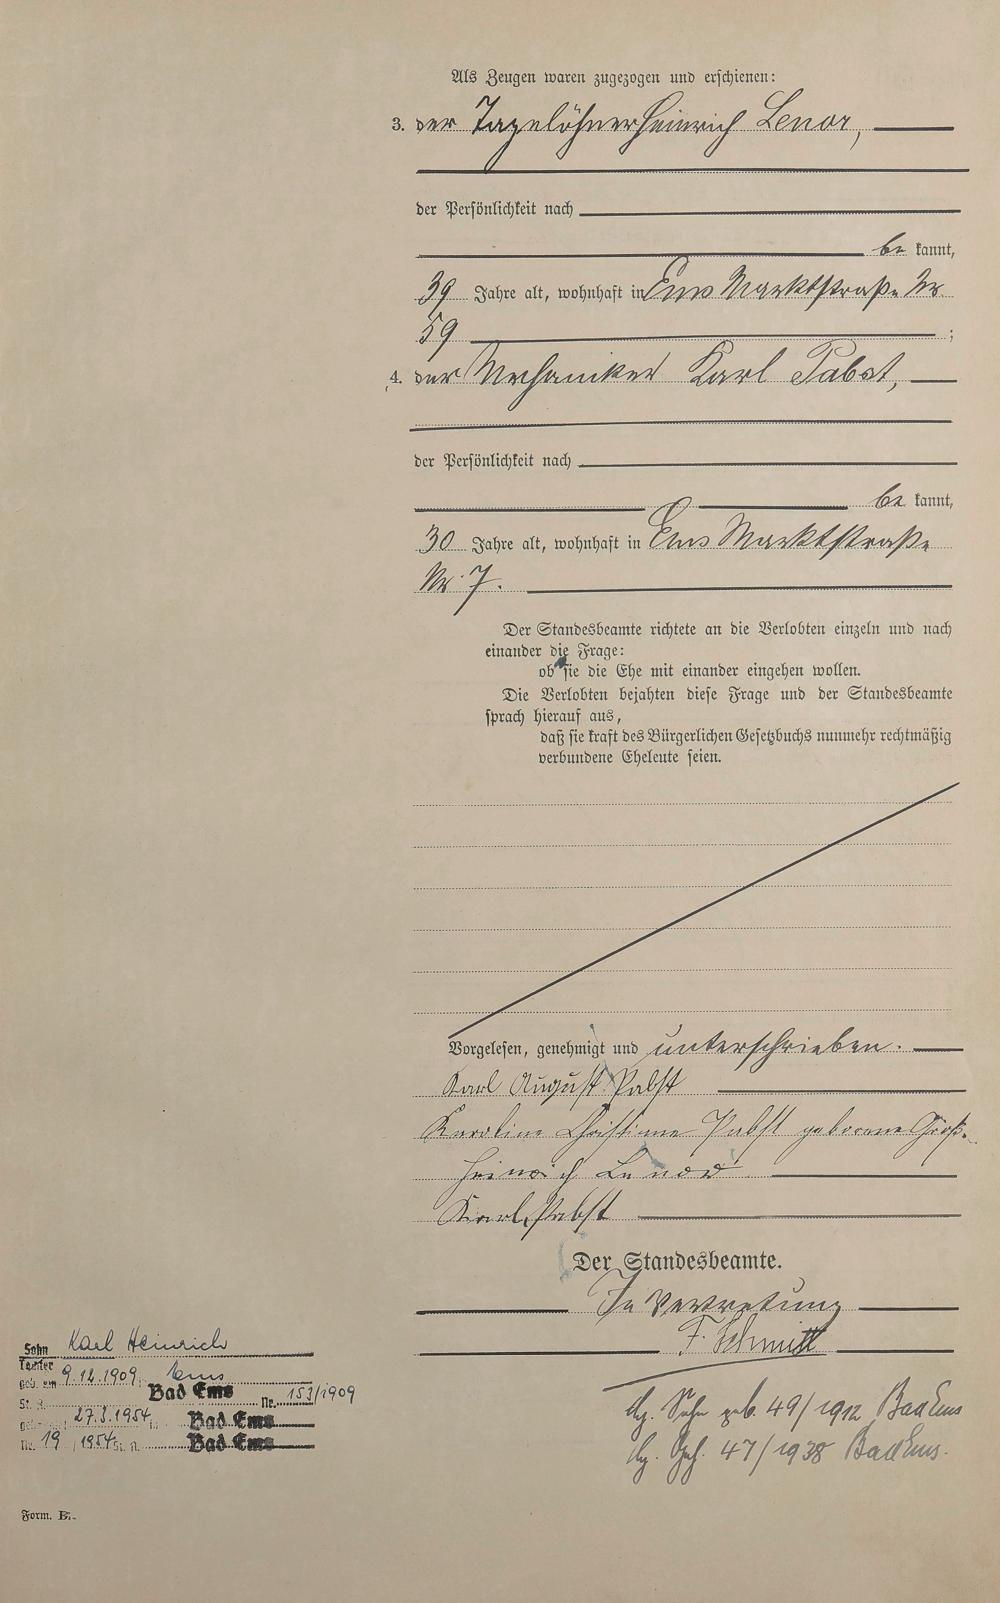 Als Zeugen waren zugezogen und erschienen:
3. der Tagelöhner Heinrich Lenor,
der Persönlichkeit nach
be kannt,
39 Jahre alt, wohnhaft in Ems Marktstraße Nr.
59 ;
4. der Mechaniker Karl Pabst,
der Persönlichkeit nach
be kannt,
30 Jahre alt, wohnhaft in Ems Marktstraße
Nr. 7.
Der Standesbeamte richtete an die Verlobten einzeln und nach
einander die Frage:
ob sie die Ehe mit einander eingehen wollen.
Die Verlobten bejahten diese Frage und der Standesbeamte
sprach hierauf aus,
daß sie kraft des Bürgerlichen Gesetzbuchs nunmehr rechtmäßig
verbundene Eheleute seien.
Vorgelesen, genehmigt und unterschrieben.
Karl August Pabst
Karoline Christine Pabst geborene Groß.
Heinrich Lenor
Karl Pabst
Der Standesbeamte.
In Vertretung
F. Schmitt
Sohn Karl Heinrich
Tochter
geb. am 9.12.1909 Ems
St. A. Bad Ems Nr. 153/1909
27.3.1954 in Bad Ems
Nr. 19/1954 St. A. Bad Ems
Sohn geb. 49/1912 Bad Ems
47/1938 Bad Ems.
Form. B.